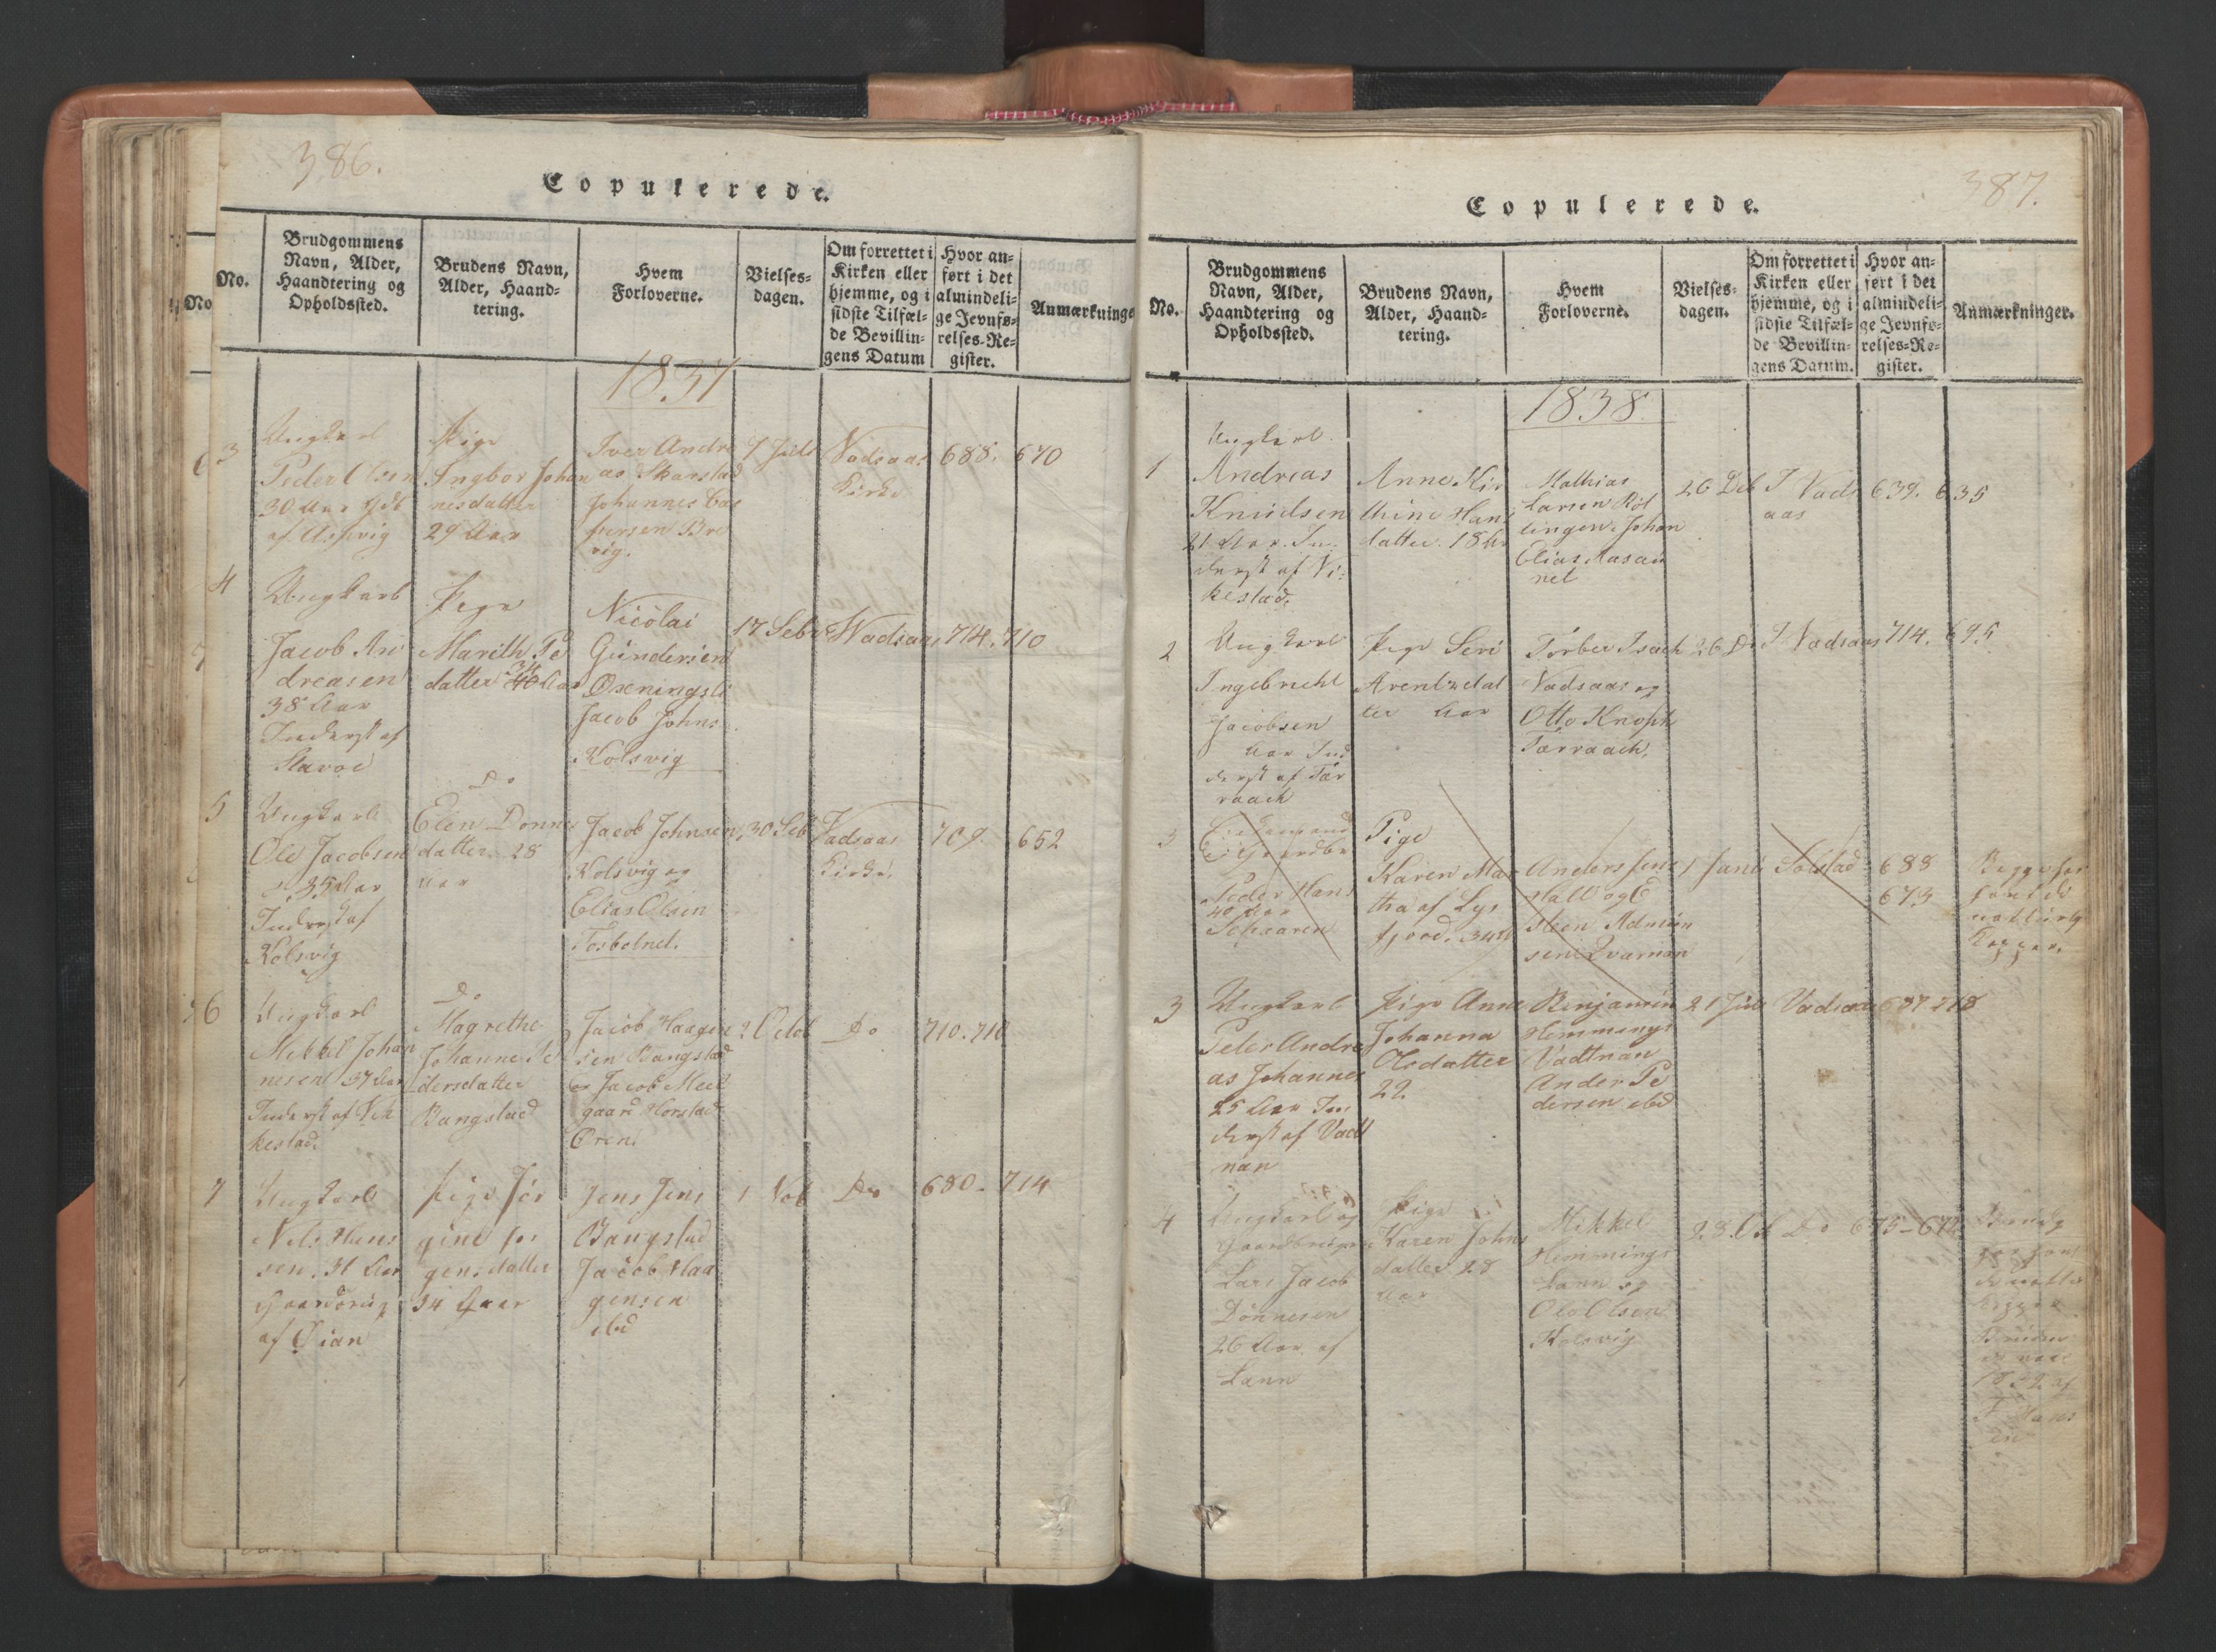 386.
Copulerede.
No.
Brudgommens
Navn, Alder,
Haandtering og
Opholdssted.
Brudens Navn,
Alder, Haand-
tering.
Hvem
Forloverne.
Vielses-
dagen.
Om forrettet i
Kirken eller
hjemme, og i
sidste Tilfæl-
de Bevillin-
gens Datum
Hvor an-
ført i det
almindeli-
ge Jevnfø-
relses-Re-
gister.
Anmærkninge
1837
3
Ungkarl
Peder Olsen
30 Aar
af
Pige
Ingbor Johan
nesdatter
29 Aar
Iver Andre
as Skarstad
Johannes Cas
persen Bre
vig.
7 Juli
Vadsaas
Kirke
688. 670
4
Ungkarl
Jacob An
dreasen
38 Aar
Inderst af
Pige
Marith Pe
datter 34 Aar
Nicolai
Gundersen
Jacob Johns
Kolsvig
17 Sebr
Vadsaas
714. 710
5
Ungkarl
Ole Jacobsen
35 Aar
Inderst af
Kolsvig
Do
Elen Donne
datter 28
Aar
Jacob Johnsen
Kolsvig og
Elias Olsen
Fosbotnet.
30 Seb
Vadsaas
Kirke
709. 652
6
Ungkarl
Mekkel Johan
nesen 37 Aar
Inderst af Vik
kestad.
Do
Magrethe
Johanne Pe
dersdatter
Bangstad
Jacob Haagen
sen Bangstad
og Jacob
gaard Horstad
Oren
2 Octob
Do
710. 710
7
Ungkarl
Nels Hans
sen. 31 Aar
Gaardbrug
af Oian
Pige Jør
gine Jør
gensdatter
34 Aar
Jens Jens
Bangstad
Jacob Haa
gensen
ibd
1 Nob
Do
680. 714
387.
Copulerede.
No.
Brudgommens
Navn, Alder,
Haandtering og
Opholdssted.
Brudens Navn,
Alder, Haand-
tering.
Hvem
Forloverne.
Vielses-
dagen.
Om forrettet i
Kirken eller
hjemme, og i
sidste Tilfæl-
de Bevillin-
gens Datum.
Hvor an-
ført i det
almindeli-
ge Jevnfø-
relses-Re-
gister.
Anmærkninger.
1838.
1
Ungkarl
Andreas
Knudsen
21 Aar. In-
derst af Vi-
kestad.
Anne Kir
stine Hans
datter. 18 Aar
Mathias
Larsen Röl
lingen. Johan
Elias Aasau
net
26 Deb
I Vads
aas
639. 635
2
Ungkarl
Ingebricht
Jacobsen
Aar Ind
derst af Tær
raack
Pige Seri
Arentzdat
ter Aar
Torber Isach
Vadsaas og
Otto Knoph
Tærraack.
26 D
I Vadsaas
714. 695
3
Peder Hans
40 Aar
Pige
Karen Mar
tha af Lys
fjord. 34
Anders Jens
Hall og
Steen
sen Kvarnan
1 Juni
Solstad
688
673
Begge har
havt de
naturlig
Kopper.
3
Ungkarl
Peter Andre
as Johannes
25 Aar In
derst af Vadt
nan
Pige Anne
Johanna
Olsdatter
22
Benjamin
Hemmings
Vadtnan
Ander Pe
dersen ibd
21 Juli
Vadsaas
687-718
4
Ungkarl og
Gaardbruger
Lars Jacob
Dønnesen
26 Aar. af
Lann
Pige
Karen Johns
datter 28
Aar
Mikkel
Hemmings
Lann og
Ole Olsen
Kolsvig
23. Ok
Do
675-671